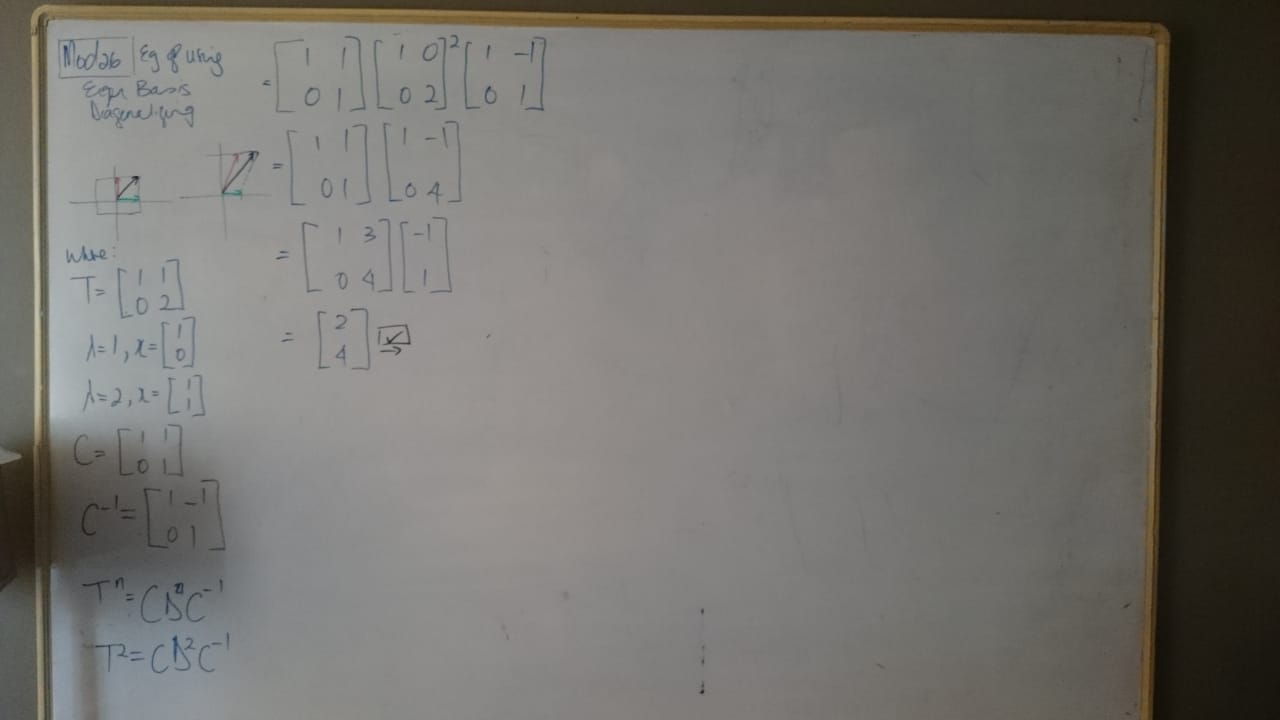 Mod26 Eg of Using
Eigen Basis
Diagonalizing
where:
T= [1 1
0 2]
λ=1, x= [1
0]
λ=2, x= [1
1]
C= [1 1
0 1]
C⁻¹= [1 -1
0 1]
Tⁿ= CDⁿC⁻¹
T²= CD²C⁻¹
= [1 1 [1 0 ² [1 -1
0 1] 0 2] 0 1]
= [1 1 [1 -1
0 1] 0 4]
= [1 3 [-1
0 4] 1]
= [2
4]